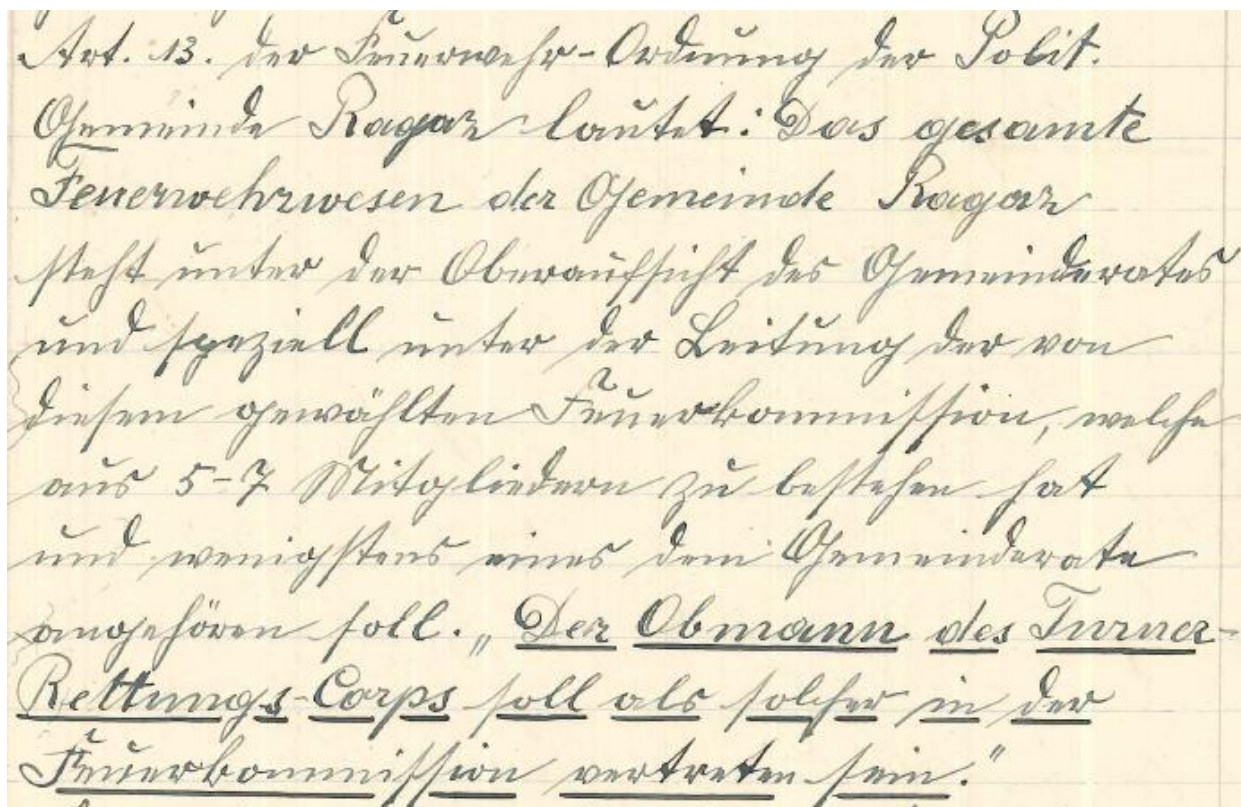 Art. 13. der Feuerwehr-Ordnung der Polit.
Gemeinde Ragaz lautet: Das gesamte
Feuerwehrwesen der Gemeinde Ragaz
steht unter der Oberaufsicht des Gemeinderates
und speziell unter der Leitung der von
diesem gewählten Feuerkommission, welche
aus 5-7 Mitgliedern zu bestehen hat
und wenigstens eines dem Gemeinderate
angehören soll. „Der Obmann des Turner-
Rettungs-Corps soll als solcher in der
Feuerkommission vertreten sein."